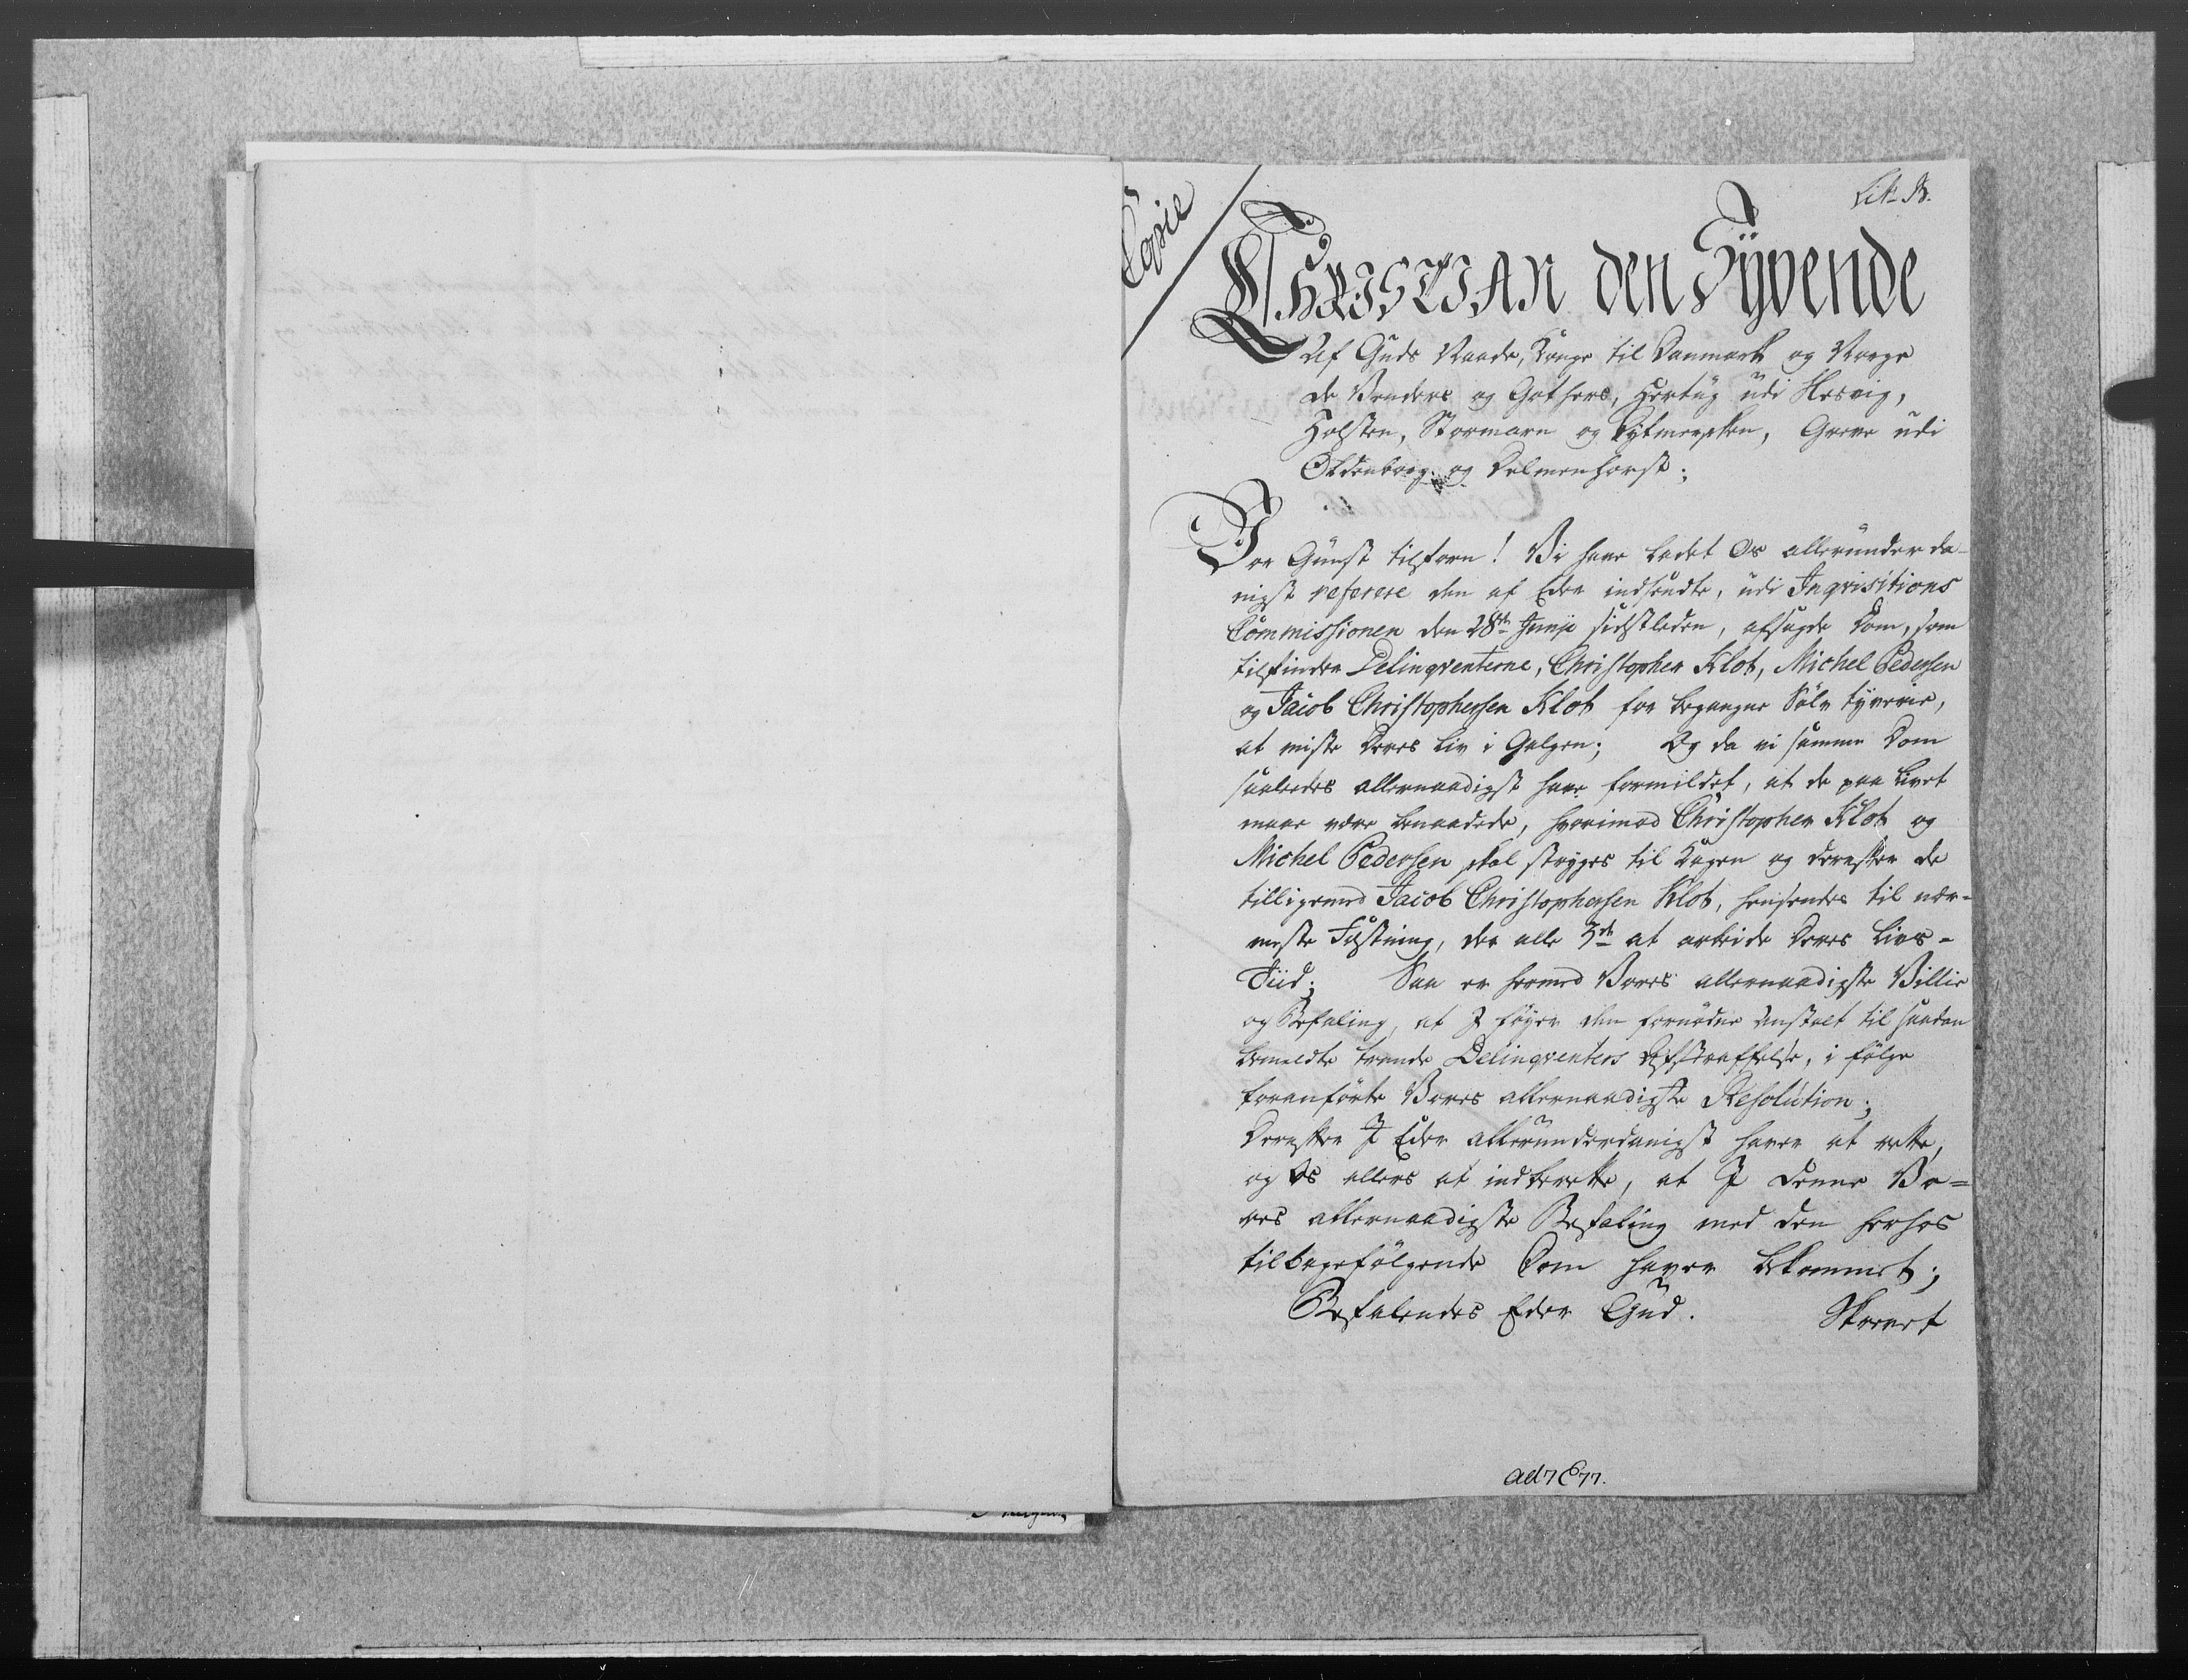 Copie
Lit. B.
CHRISTIAN den Syvende
Af Guds Naade, Konge til Danmark og Norge
de Venders og Gothers, Hertug udi Slesvig,
Holsten, Stormarn og Dytmersken, Greve udi
Oldenborg og Delmenhorst;
Vor Gunst tilforn! Vi have ladet Os allerunderda-
nigst referere den af Eder indsendte, udi Inqvisitions
Commissionen den 28de Junji sidstleden, afsagde Dom, som
tilfinder Delinqventerne, Christopher Klot, Michel Pedersen
og Jacob Christophersen Klot for begangne Sølv tyverie,
at miste Deres Liv i Galgen; Og da vi samme Dom
saaledes allernaadigst have formildet, at de paa Livet
maae være benaadede, hvorimod Christopher Klot og
Michel Pedersen skal stryges til Kagen og derefter de
tilligemed Jacob Christophersen Klot, hensendes til nær-
meste Fæstning, der alle 3de at arbeide Deres Livs-
Tiid; Saa er hermed Vores allernaadigste Villie
og Befaling, at I føyer den fornødne Anstalt til saadan
bemeldte trende Delinqventers Afstraffelse, i følge
foranførte Vores allernaadigste Resolution;
Derefter I Eder allerunderdanigst haver at rette,
og Os ellers at indberette, at I denne Vo-
res allernaadigste Befaling med den herhos
tilbagefølgende Dom haver bekommet;
Befalendes Eder Gud. Skrevet